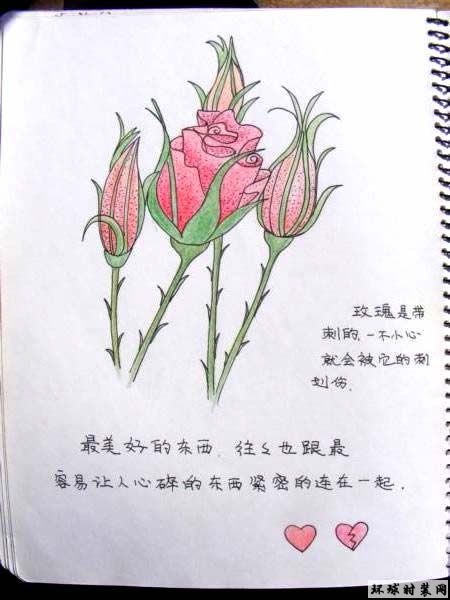 玫瑰是带
刺的.一不小心
就会被它的刺
划伤.
最美好的东西.往々也跟最
容易让人心碎的东西紧密的连在一起.
环球时装网